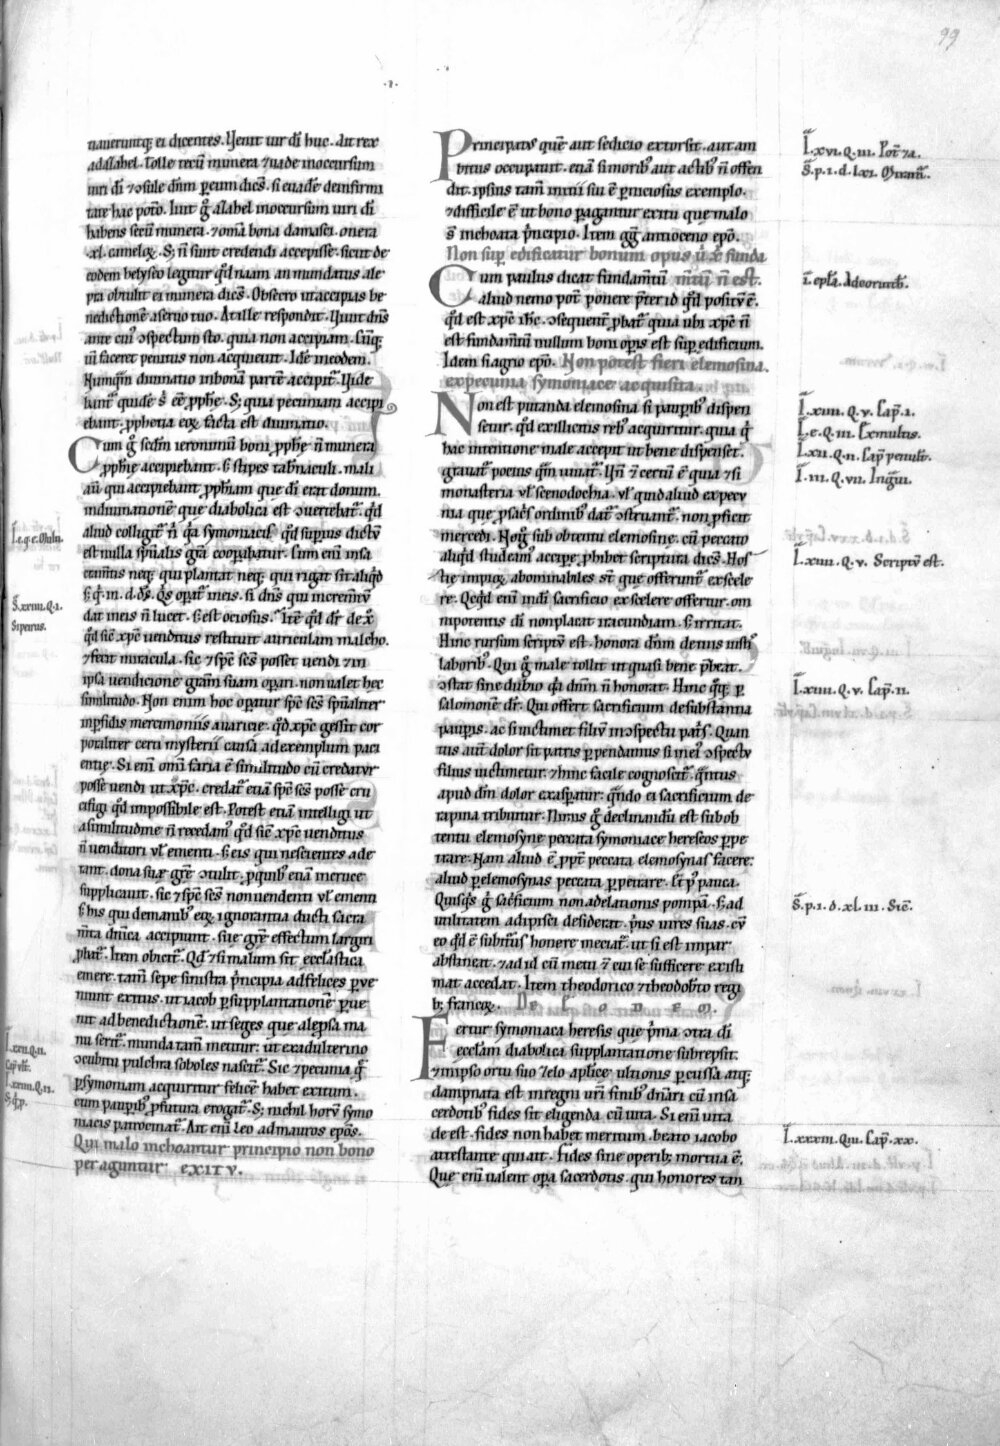 99
.I.
nauerunt q; ei dicentes. Uenit uir dī huc. Ait rex
ad asahel. Tolle tecū munera ⁊ uade in occursum
uiri dī ⁊ ɔsule dn̄m per eum dicēs. si euadē de infirmi
tate hac poto. Iuit g̊ alahel in occursum uiri dī
habens secū munera ⁊ om̄a bona damasci. onera
.xl. camelor. S; n̄ sunt credendi accepisse. sicut de
eodem helyseo legitur qd̄ naam an mundatus ale
pra obtulit ei munera dicēs. Obsecro ut accipias be
nedictionē a seruo tuo. At ille respondit. Uiuit dn̄s
ante cui' ɔspectum sto. quia non accipiam. Cūq;
uī faceret penitus non acquieuit. Idē in eodem.
Numq̄m diuinatio in bonā partē accipit'. Uide
bant' quidē s' eē pphe. S; quia pecuniam accipi
ebant. pphetia eor facta est diuinatio.
Cum g̊ sedm ieronimū boni pphe n̄ munera
pphie accipiebant. s; stipes tab'naculi. mali
aū qui accipiebant pphiam que dī erat donum.
in diuinationē que diabolica est ɔuertebat'. qd̄
aliud colligit' n̄ qa symoniacis. qd̄ supius dictū
est nulla spūalis gr̄a coopabatur. Cum enī insa
cramtis neq; qui plantat neq; qui rigat sit aliqd
s; q' in. d. ds. Qs opat' in eis. si dn̄s qui incremtū
dat in eis n̄ lucet. s; est ociosus. Itē qd̄ dr' de xp̄o
qd̄ sic xp̄c uenditus restituit auriculam malcho.
⁊ fecit miracula. sic ⁊ sp̄c sc̄s posset uendi ⁊ in
ipsa uendicione gr̄am suam opari. non ualet hec
similitudo. Non enim hoc opatur sp̄c sc̄s sp̄ualiter
in pfidis mercimoniis auaricie. qd̄ xp̄c gessit cor
poraliter certi mysterii causa ad exemplum paci
entię. Si enī om̄i faria ē similitudo cū credatur
posse uendi ut xp̄c. credat' etiā sp̄c sc̄s posse cru
cifigi qd̄ impossibile est. Potest etiā intelligi ut
a similitudine n̄ recedam'. qd̄ sic xp̄c uenditus
n̄ uenditori ul' ementi. s; eis qui nescientes ade
rant. dona suę gr̄e ɔtulit. p quib; etiā in cruce
supplicauit. sic ⁊ sp̄c sc̄s non uendenti ul' ementi
s; his qui de manib; eor ignorantia ducti sacra
mta dn̄ica accipiunt. sue gr̄e effectum largiri
pbat'. Item obicit'. Qd̄ ⁊ si malum sit ecclastica
emere. tam̄ sepe sinistra pncipia ad felices pue
niunt exitus. ut iacob p supplantationē pue
nit ad benedictionē. ut seges que a lepsa ma
nu serit'. munda tam̄ metitur. ut ex adulterino
ɔcubitu pulchra soboles nascit'. Sic ⁊ pecunia q̄
p symoniam acquiritur felicē habet exitum.
cum paupib; pfutura erogat'. S; nichil horū symo
niacis patrocinat'. Ait enī leo ad mauros epos.
Qui malo inchoantur principio non bono
peraguntur exitu.
Principatus quē aut sedicio extorsit. aut am
bitus occupauit. etiā si morib; aut actib; n̄ offen
dit. ipsius tam̄ initii sui ē pniciosus exemplo.
⁊ difficile ē ut bono pagantur exitu que malo
s̄ inchoata pncipio. Item gg̊ antioceno epo.
Non sup edificatur bonum opus u' xp̄c funda
mtū n̄ est.
Cum paulus dicat fundamtū
aliud nemo pot' ponere pter id qd̄ positū ē.
qd̄ est xp̄c ihc. ɔsequent' pbat' quia ubi xp̄c n̄
est fundamtū nullum boni opis est sup edificium.
Idem siagrio epo. Non potest fieri elemosina.
ex pecunia symoniace acquisita.
Non est putanda elemosina si paupib; dispen
setur. qd̄ ex illicitis reb; acquiritur. quia q'
hac intentione male accepit ut bene dispenset.
grauat' pocius qm̄ iuuat'. Un̄ ⁊ certū ē quia ⁊ si
monasteria ul' scenodochia. ul' quid aliud ex pecu
nia que p sacs ordinib; dat' ɔstruant'. non pficit
mercedi. Ne g̊ sub obtentu elemosine. cū peccato
aliqd studeam' accipe. phibet scriptura dicēs. Hos
tię impior abominabiles sт que offerunt' ex scele
re. Qcqd enī in dī sacrificio ex scelere offertur. om
nipotentis dī non placat iracundiam. s; irritat.
Hinc rursum scriptū est. honora dn̄m de tuis iustis
laborib;. Qui g̊ male tollit ut quasi bene pbeat.
ɔstat sine dubio qa dn̄m n̄ honorat. Hinc q̊q; p
salomonē dr'. Qui offert sacrificium de substantia
paupis. ac si uictimet filiū in ɔspectu patris. Quan
tus aūt dolor sit patris ppendamus si in ei' ɔspectu
filius uictimetur. ⁊ hinc facile cognoscit'. q̄ntus
apud dm̄ dolor exasperatur. q̄ndo ei sacrificium de
rapina tribuitur. Nimis g̊ declinandū est sub ob
tentu elemosyne peccata symoniace hereseos ppe
trare. Nam aliud ē ppt' peccata elemosynas facere:
aliud p elemosynas peccata ppetrare. Et p' pauca.
Quisqs g̊ sacrficium non ad elationis pompā. s; ad
utilitatem adipisci desiderat. p'us uires suas cū
eo qd̄ ē subiturus honere meciat'. ut si est impar
abstineat. ⁊ ad id cū metu ⁊ cui se sufficere existi
mat accedat. Item theodorico ⁊ theodob'to regi
b; francor. De eodem.
Fertur symoniaca heresis que p'ma ɔtra dī
ecclam diabolica supplantatione subrepsit.
⁊ in ipso ortu suo zelo aplice ultionis pcussa atq;
dampnata est. in regni ur̄i finib; dn̄ari cū in sa
cerdotib; fides sit eligenda cū uita. Si enī uita
deest. fides non habet meritum. beato iacobo
attestante qui ait. Fides sine operib; mortua ē.
Que enī ualent opa sacerdotis. qui honores tan
I.xvi.Q.iii. Pot' ⁊a.
S.p.i.d.lxi. Miram'.
I epla Ad corinth.
I.xiiii.Q.v. Cap.i.
I.e.Q.iii. Exmultis.
I.xii.Q.ii. Cap penult.
I.iii.Q.vii. In g̊ui.
I.xiiii.Q.v. Scriptū est.
I.xiiii.Q.v. Cap.ii.
S.p.i.d.xl.iii. Sic.
I.xxxiii.Q.iii. Cap.xx.
S.xxiiii.Q.i.
Si petrus.
I.xxii.Q.ii.
Cap ult.
I.xxiiii.Q.ii.